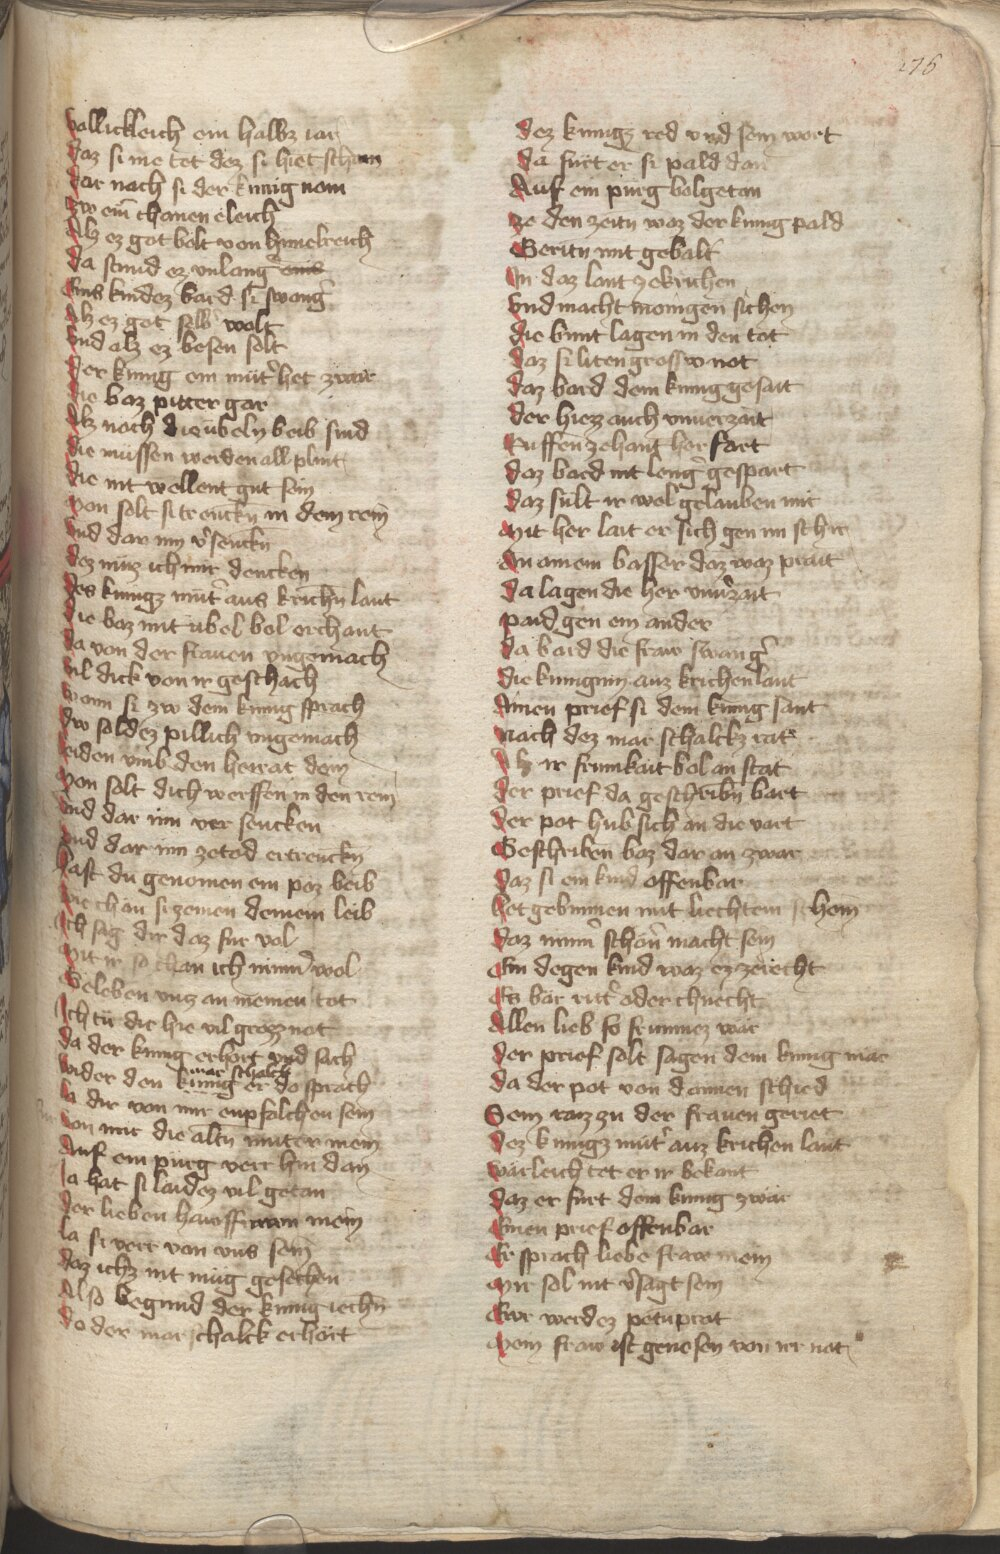 276
vollickleich ein halbz iar
Daz si nie tet dez si hiet scham
Dar nach si der kunig nam
Zw eim chanen eleich
Alz ez got bolt von hymelreich
Da stund ez vnlang
Eins kindez bard si swang
Alz ez got selb wolt
Vnd alz ez besen solt
Der kunig ein mut het zwar
Die baz pitter gar
Alz noch die ubeln beib sind
Die müssen werden all plint
Die nit wellent gut sein
Von solt si trencken in dem rein
Vnd dar inn v̓sencken
Dez muz ich mir dencken
Des kunigz mut̓ aus krichn lant
Die baz mit ubel bol erchant
Da von der frawen vngemach
Vil dick von ir geschach
Wann si zw dem kunig sprach
Dw soldez pillich vngemach
Leiden vmb den heirat dein
Mon solt dich werffen in den rein
Vnd dar inn ver sencken
Vnd dar inn zetod ertrencken
Hast du genomen ein poz beib
Die chan si zemen deinem leib
Ich sag dir daz fur vol
Mit ir so chan ich nimm̓ wol
Beleben vntz an meinen tot
Ich tü dir hie vil grozz not
Da der kunig erhort vnd sach
marschalck
Wider den kunig er do sprach
La dir von mir enpfolchen sein
Von mir die altn muter mein
Auf ein purg verr hin dan
Ja hat si laidez vil getan
Der lieben hawsfrawn mein
La si verr von vns sein
Daz ichz nit mug gesechen
Also begund der kunig iechn
Do der marschalck erhort
Dez kunigz red vnd sein wort
Da furt er si pald dan
Auf ein purg bolgetan
Ze den zeitn waz der kunig pald
Geritn mit gebalt
In daz lant zekrichen
Vnd macht monigen sichen
Die bunt lagen in den tot
Daz si liten grossw not
Daz bard dem kunig gesait
Der hiezz auch vnuerzait
Ruffen zehant her fart
Daz bard nit leng̓ gespart
Daz sült ir wol gelauben mir
Mit her lait er sich gen im schir
An ainem basser daz waz prait
Da lagen die her vnu̓zait
Paid gen ein ander
Da baid die fraw swang̓
Die kunigin auz krichen lant
Ainen prief si dem kunig sant
Nach dez marschalckz rat
Alz ir frumkait bol an stat
Der prief da geschribn bart
Der pot hub sich an die vart
Geschriben baz dar an zwar
Daz si ein kind offenbar
Het gebunnen mit liechtem schein
Daz nimm̓ schön̓ macht sein
Ein degen kind waz ez ze recht
Ez bär rit̓ oder chnecht
Allen lieb so frummez wär
Der prief solt sagen dem kunig mär
Da der pot von dannen schied
Sein ranzn der frauen geriet
Dez kunigz mut̓ auz krichen lant
Wärleich tet er ir bekant
Daz er furt dem kunig zwär
Einen prief offenbar
Er sprach liebe fraw mein
Mir sol nit v̓sagt sein
Ewr werdez petnprat
Mein fraw ist genesen von ir not